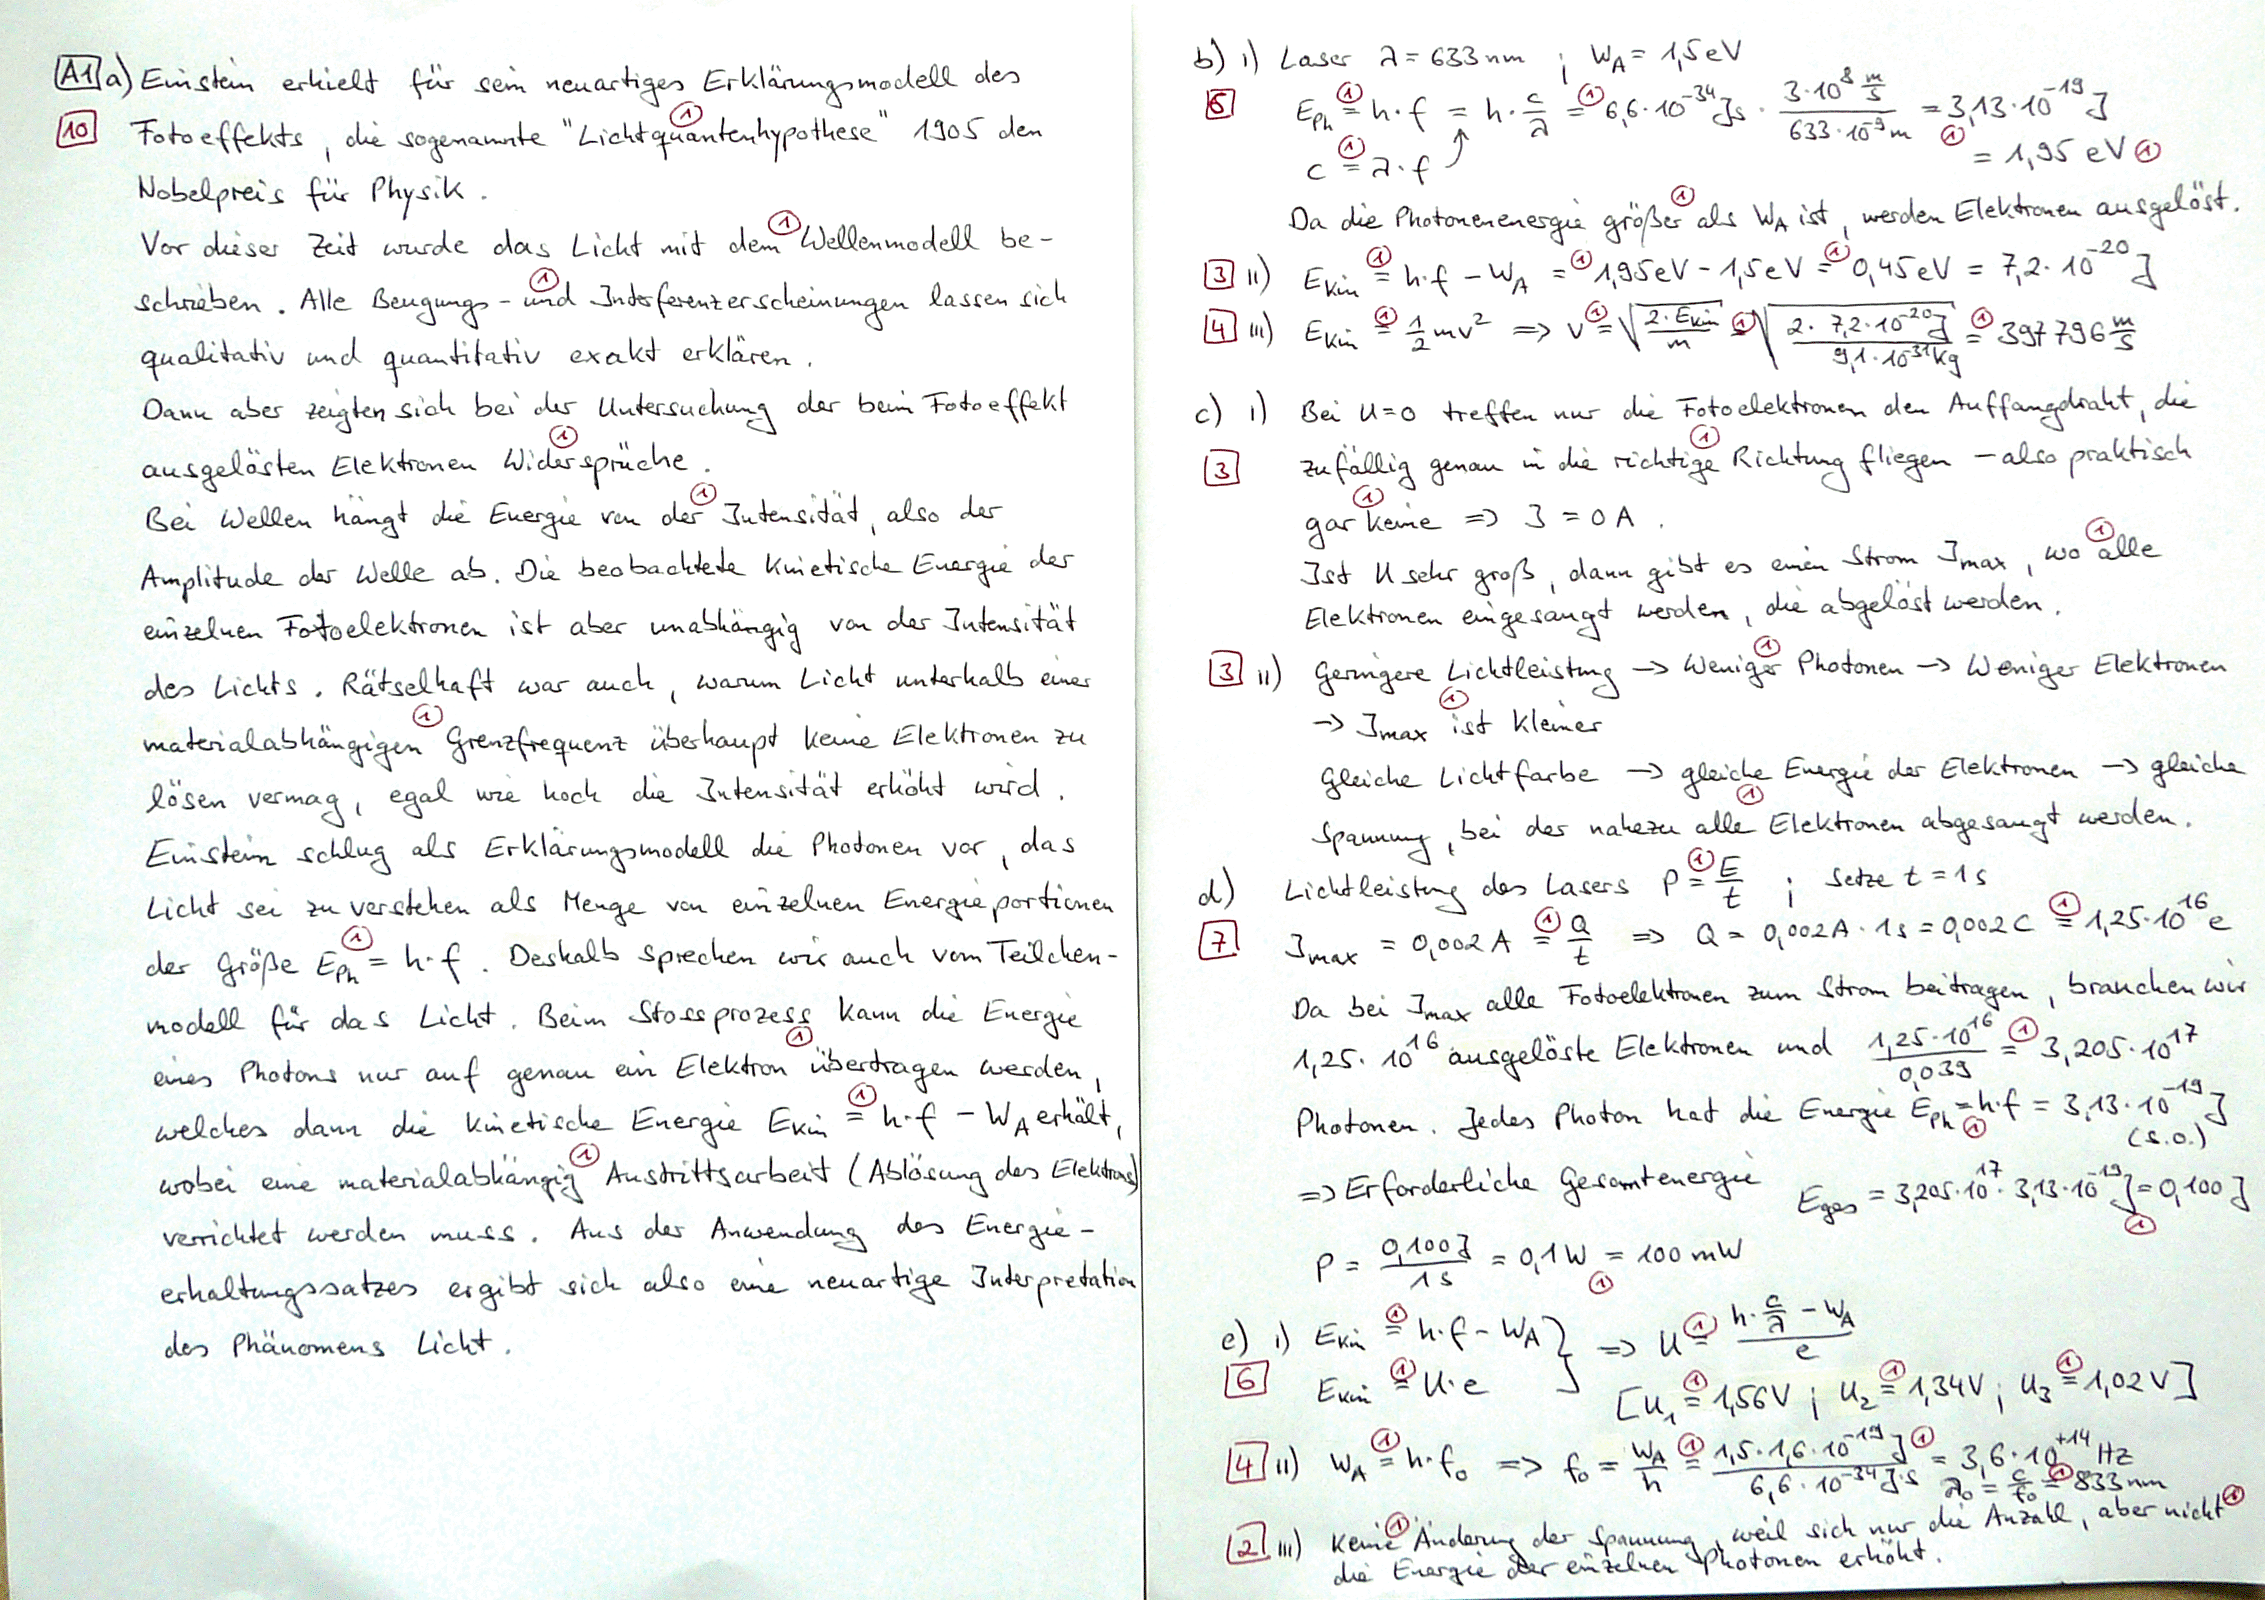 A1 a) Einstein erhielt für sein neuartiges Erklärungsmodell des
10 Fotoeffekts, die sogenannte "Lichtquantenhypothese" 1905 den
Nobelpreis für Physik.
Vor dieser Zeit wurde das Licht mit dem Wellenmodell be-
schrieben. Alle Beugungs- und Interferenzerscheinungen lassen sich
qualitativ und quantitativ exakt erklären.
Dann aber zeigten sich bei der Untersuchung der beim Fotoeffekt
ausgelösten Elektronen Widersprüche.
Bei Wellen hängt die Energie von der Intensität, also der
Amplitude der Welle ab. Die beobachtete kinetische Energie der
einzelnen Fotoelektronen ist aber unabhängig von der Intensität
des Lichts. Rätselhaft war auch, warum Licht unterhalb einer
materialabhängigen Grenzfrequenz überhaupt keine Elektronen zu
lösen vermag, egal wie hoch die Intensität erhöht wird.
Einstein schlug als Erklärungsmodell die Photonen vor, das
Licht sei zu verstehen als Menge von einzelnen Energieportionen
der Größe E_Ph = h·f. Deshalb sprechen wir auch vom Teilchen-
modell für das Licht. Beim Stossprozess kann die Energie
eines Photons nur auf genau ein Elektron übertragen werden,
welches dann die kinetische Energie E_kin = h·f - W_A erhält,
wobei eine materialabhängig Austrittsarbeit (Ablösung des Elektrons)
verrichtet werden muss. Aus der Anwendung des Energie-
erhaltungssatzes ergibt sich also eine neuartige Interpretation
des Phänomens Licht.
b) i) Laser λ = 633 nm ; W_A = 1,5 eV
6 E_Ph = h·f = h·c/λ = 6,6·10^-34 Js · (3·10^8 m/s)/(633·10^-9 m) = 3,13·10^-19 J
c = λ·f = 1,95 eV
Da die Photonenenergie größer als W_A ist, werden Elektronen ausgelöst.
3 ii) E_kin = h·f - W_A = 1,95 eV - 1,5 eV = 0,45 eV = 7,2·10^-20 J
4 iii) E_kin = 1/2 mv² => v = √(2·E_kin/m) = √(2·7,2·10^-20 J/9,1·10^-31 kg) = 397796 m/s
c) i) Bei U=0 treffen nur die Fotoelektronen den Auffangdraht, die
3 zufällig genau in die richtige Richtung fliegen - also praktisch
gar keine => I = 0 A.
Ist U sehr groß, dann gibt es einen Strom I_max, wo alle
Elektronen eingesaugt werden, die abgelöst werden.
3 ii) Geringere Lichtleistung → Weniger Photonen → Weniger Elektronen
→ I_max ist kleiner
Gleiche Lichtfarbe → gleiche Energie der Elektronen → gleiche
Spannung, bei der nahezu alle Elektronen abgesaugt werden.
d) Lichtleistung des Lasers P = E/t ; Setze t = 1s
7 I_max = 0,002 A = Q/t => Q = 0,002A·1s = 0,002 C = 1,25·10^16 e
Da bei I_max alle Fotoelektronen zum Strom beitragen, brauchen wir
1,25·10^16 ausgelöste Elektronen und 1,25·10^16/0,039 = 3,205·10^17
Photonen. Jedes Photon hat die Energie E_Ph = h·f = 3,13·10^-19 J
(s.o.)
=> Erforderliche Gesamtenergie E_ges = 3,205·10^17·3,13·10^-19 J = 0,100 J
P = 0,100 J/1 s = 0,1 W = 100 mW
e) i) E_kin = h·f - W_A } => U = (h·c/λ - W_A)/e
6 E_kin = U·e [U_1 = 1,56V ; U_2 = 1,34V ; U_3 = 1,02V]
4 ii) W_A = h·f_0 => f_0 = W_A/h = (1,5·1,6·10^-19 J)/(6,6·10^-34 J·s) = 3,6·10^+14 Hz
λ_0 = c/f_0 = 833 nm
2 iii) Keine Änderung der Spannung, weil sich nur die Anzahl, aber nicht
die Energie der einzelnen Photonen erhöht.